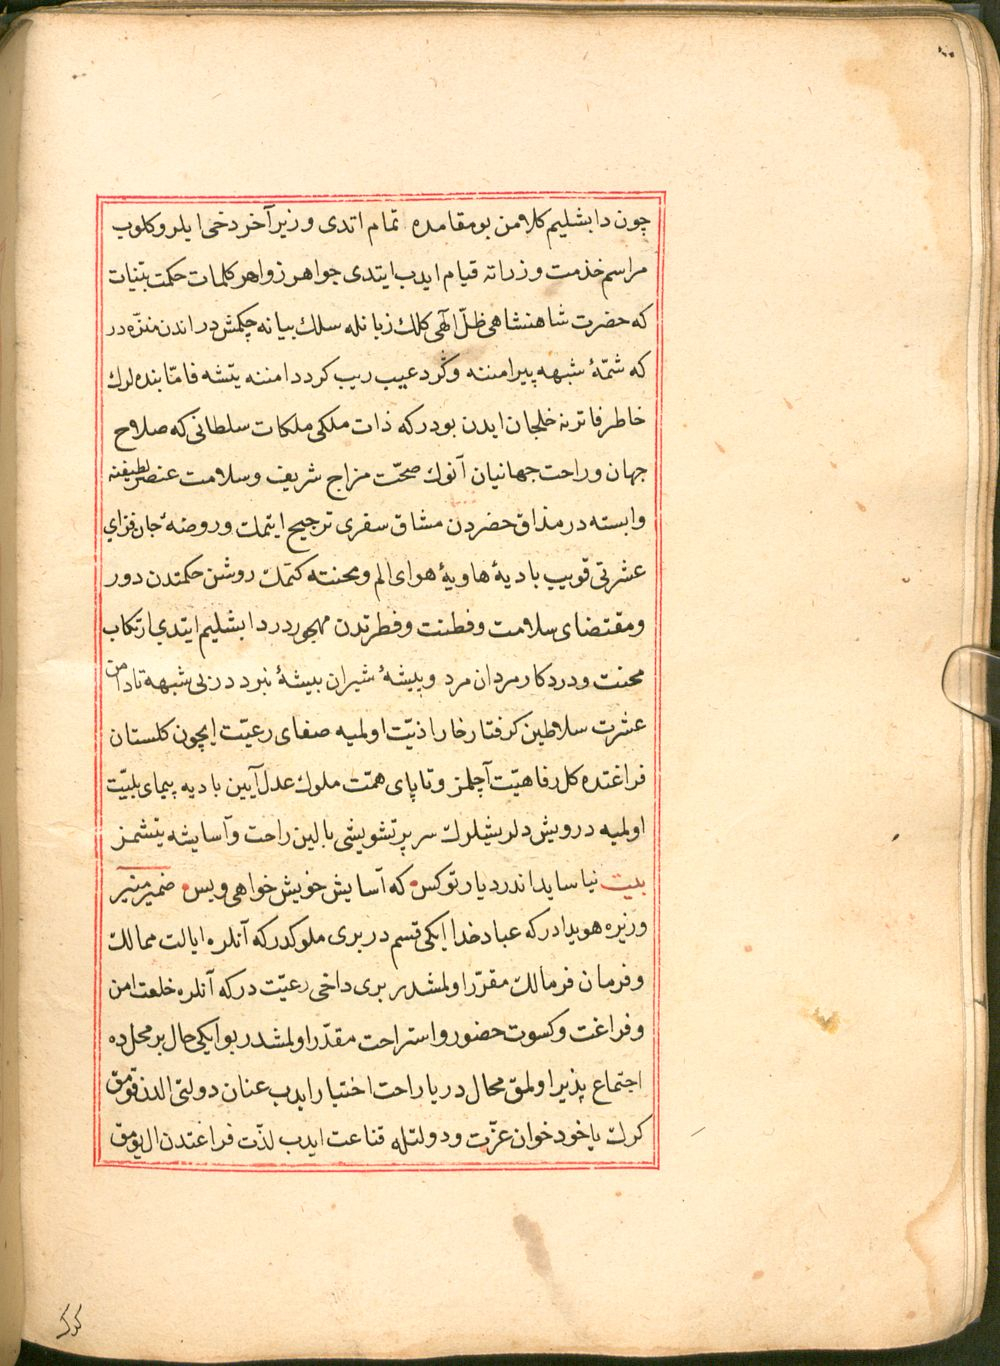 چون دابشلیم کلامن بو مقامده تمام اتدی وزیر آخر دخی ایلرو کلوب
مراسم خذمت وزراته قیام ایدب ایتدی جواهر زواهر کلمات حکمت بتنیات
که حضرت شاهنشاهی ظلّ الٓهی کلك زبانله سلك بیانه چکمش در اندن منزّه در
که شمّهٔ شبهه پیرامننه وکرد عیب ریب کرد دامننه یتشه فامّا بنده لرك
خاطر فاترنه خلجان ایدن بودر که ذات ملکی ملکات سلطانی که صلاح
جهان وراحت جهانیان آنوك صحّت مزاج شریف وسلامت عنصر لطیفنه
وابسته در مذاق حضردن مشاق سفری ترجیح ایتمك وروضهٔ جان فزای
عشرتی قویب بادیهٔ هاویهٔ هوای الم ومحنته کتمك روشن حکمتدن دور
ومقتضای سلامت وفطنت وفطرتدن مهجوردر دابشلیم ایتدی ارتکاب
محنت ودرد کار مردان مرد وپیشهٔ شیران بیشهٔ نبرد در بی شبهه تا دامن
عشرت سلاطین کرفتار خار اذیّت اولمیه صفای رعیّت ایچون کلستان
فراغتده کل رفاهیّت آچلمز وتا پای همّت ملوك عدل آیین بادیه پیمای بلیّت
اولمیه درویش دلریشلرك سر پر تشویشی بالین راحت وآسایشه یتشمز
بیت نیاساید اندر دیار تو کس که آسایش خویش خواهی وبس ضمیر منیر
وزیره هویدادر که عباد خدا ایکی قسم در بری ملوکدر که آنلره ایالت ممالك
وفرمان فرمالك مقرّر اولمشدر بری داخی رعیّت در که آنلره خلعت امن
وفراغت وکسوت حضور واستراحت مقدّر اولمشدر بو ایکی حال بر محل ده
اجتماع پذیر اولمق محال در یا راحت اختیار ایدب عنان دولتی الدن قومق
کرك یا خود خوان عزّت ودولتله قناعت ایدب لذّت فراغتدن ال یومق
کرک